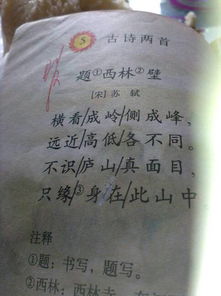 5 古诗两首
题①西林②壁
[宋]苏轼
横看/成岭/侧成峰,
远近/高低/各不同。
不识/庐山/真面目,
只缘/③身在/此山中
注释
①题:书写,题写。
②西林:西林寺,在